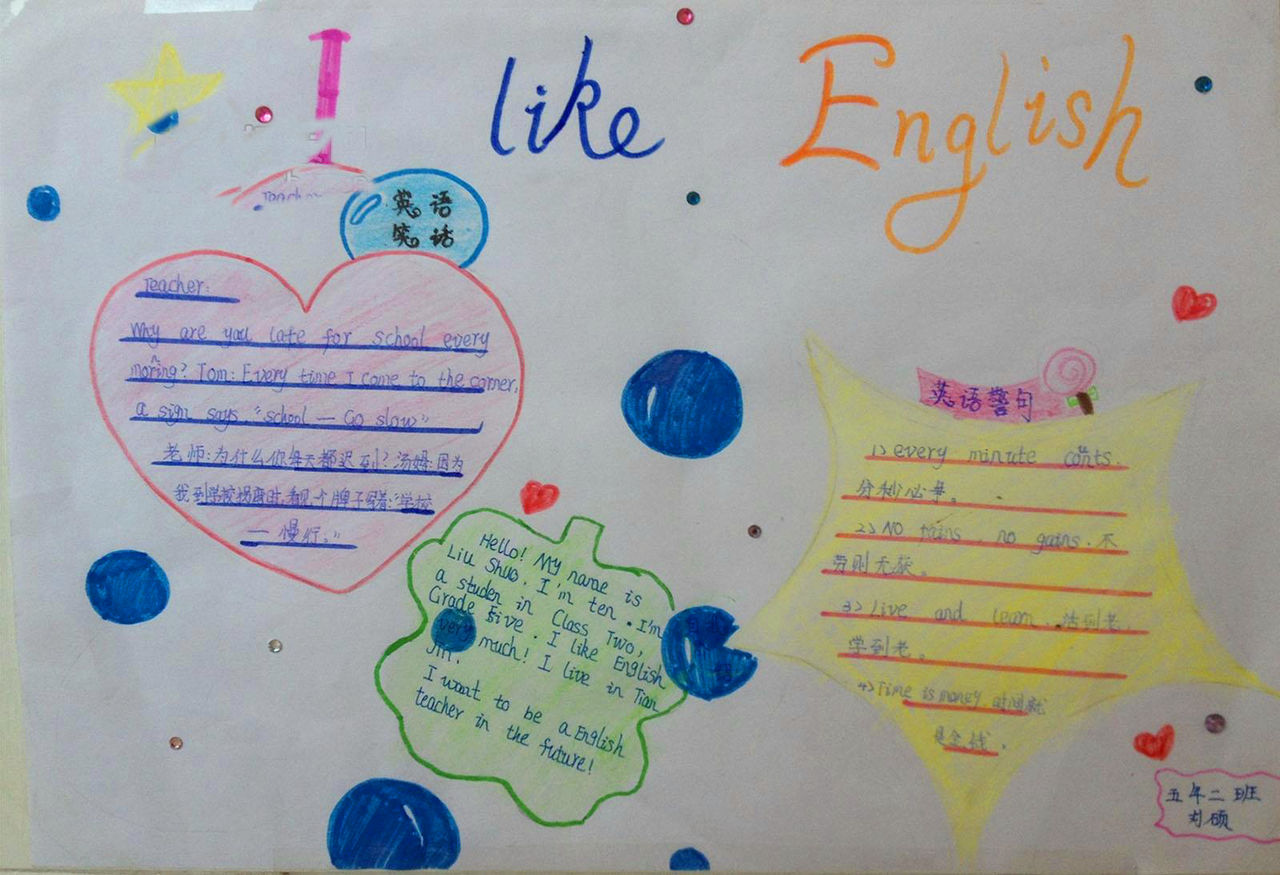 I like English
英语
笑话
Teacher:
Why are you late for school every
moring? Tom: Every time I come to the corner,
a sign says. "school — Go slow"
老师:为什么你每天都迟到?汤姆:因为
我到学校拐弯时,看见个牌子写着:"学校
— 慢行。"
Hello! My name is
Liu Shuo. I'm ten. I'm
a studen in Class Two,
Grade Five. I like English
very much! I live in Tian
Jin.
I want to be a English
teacher in the future!
英语警句
1> every minute counts.
分秒必争。
2> No pains, no gains. 不
劳则无获。
3> Live and learn. 活到老,
学到老。
4> Time is money 时间就
是金钱.
五年二班
刘硕